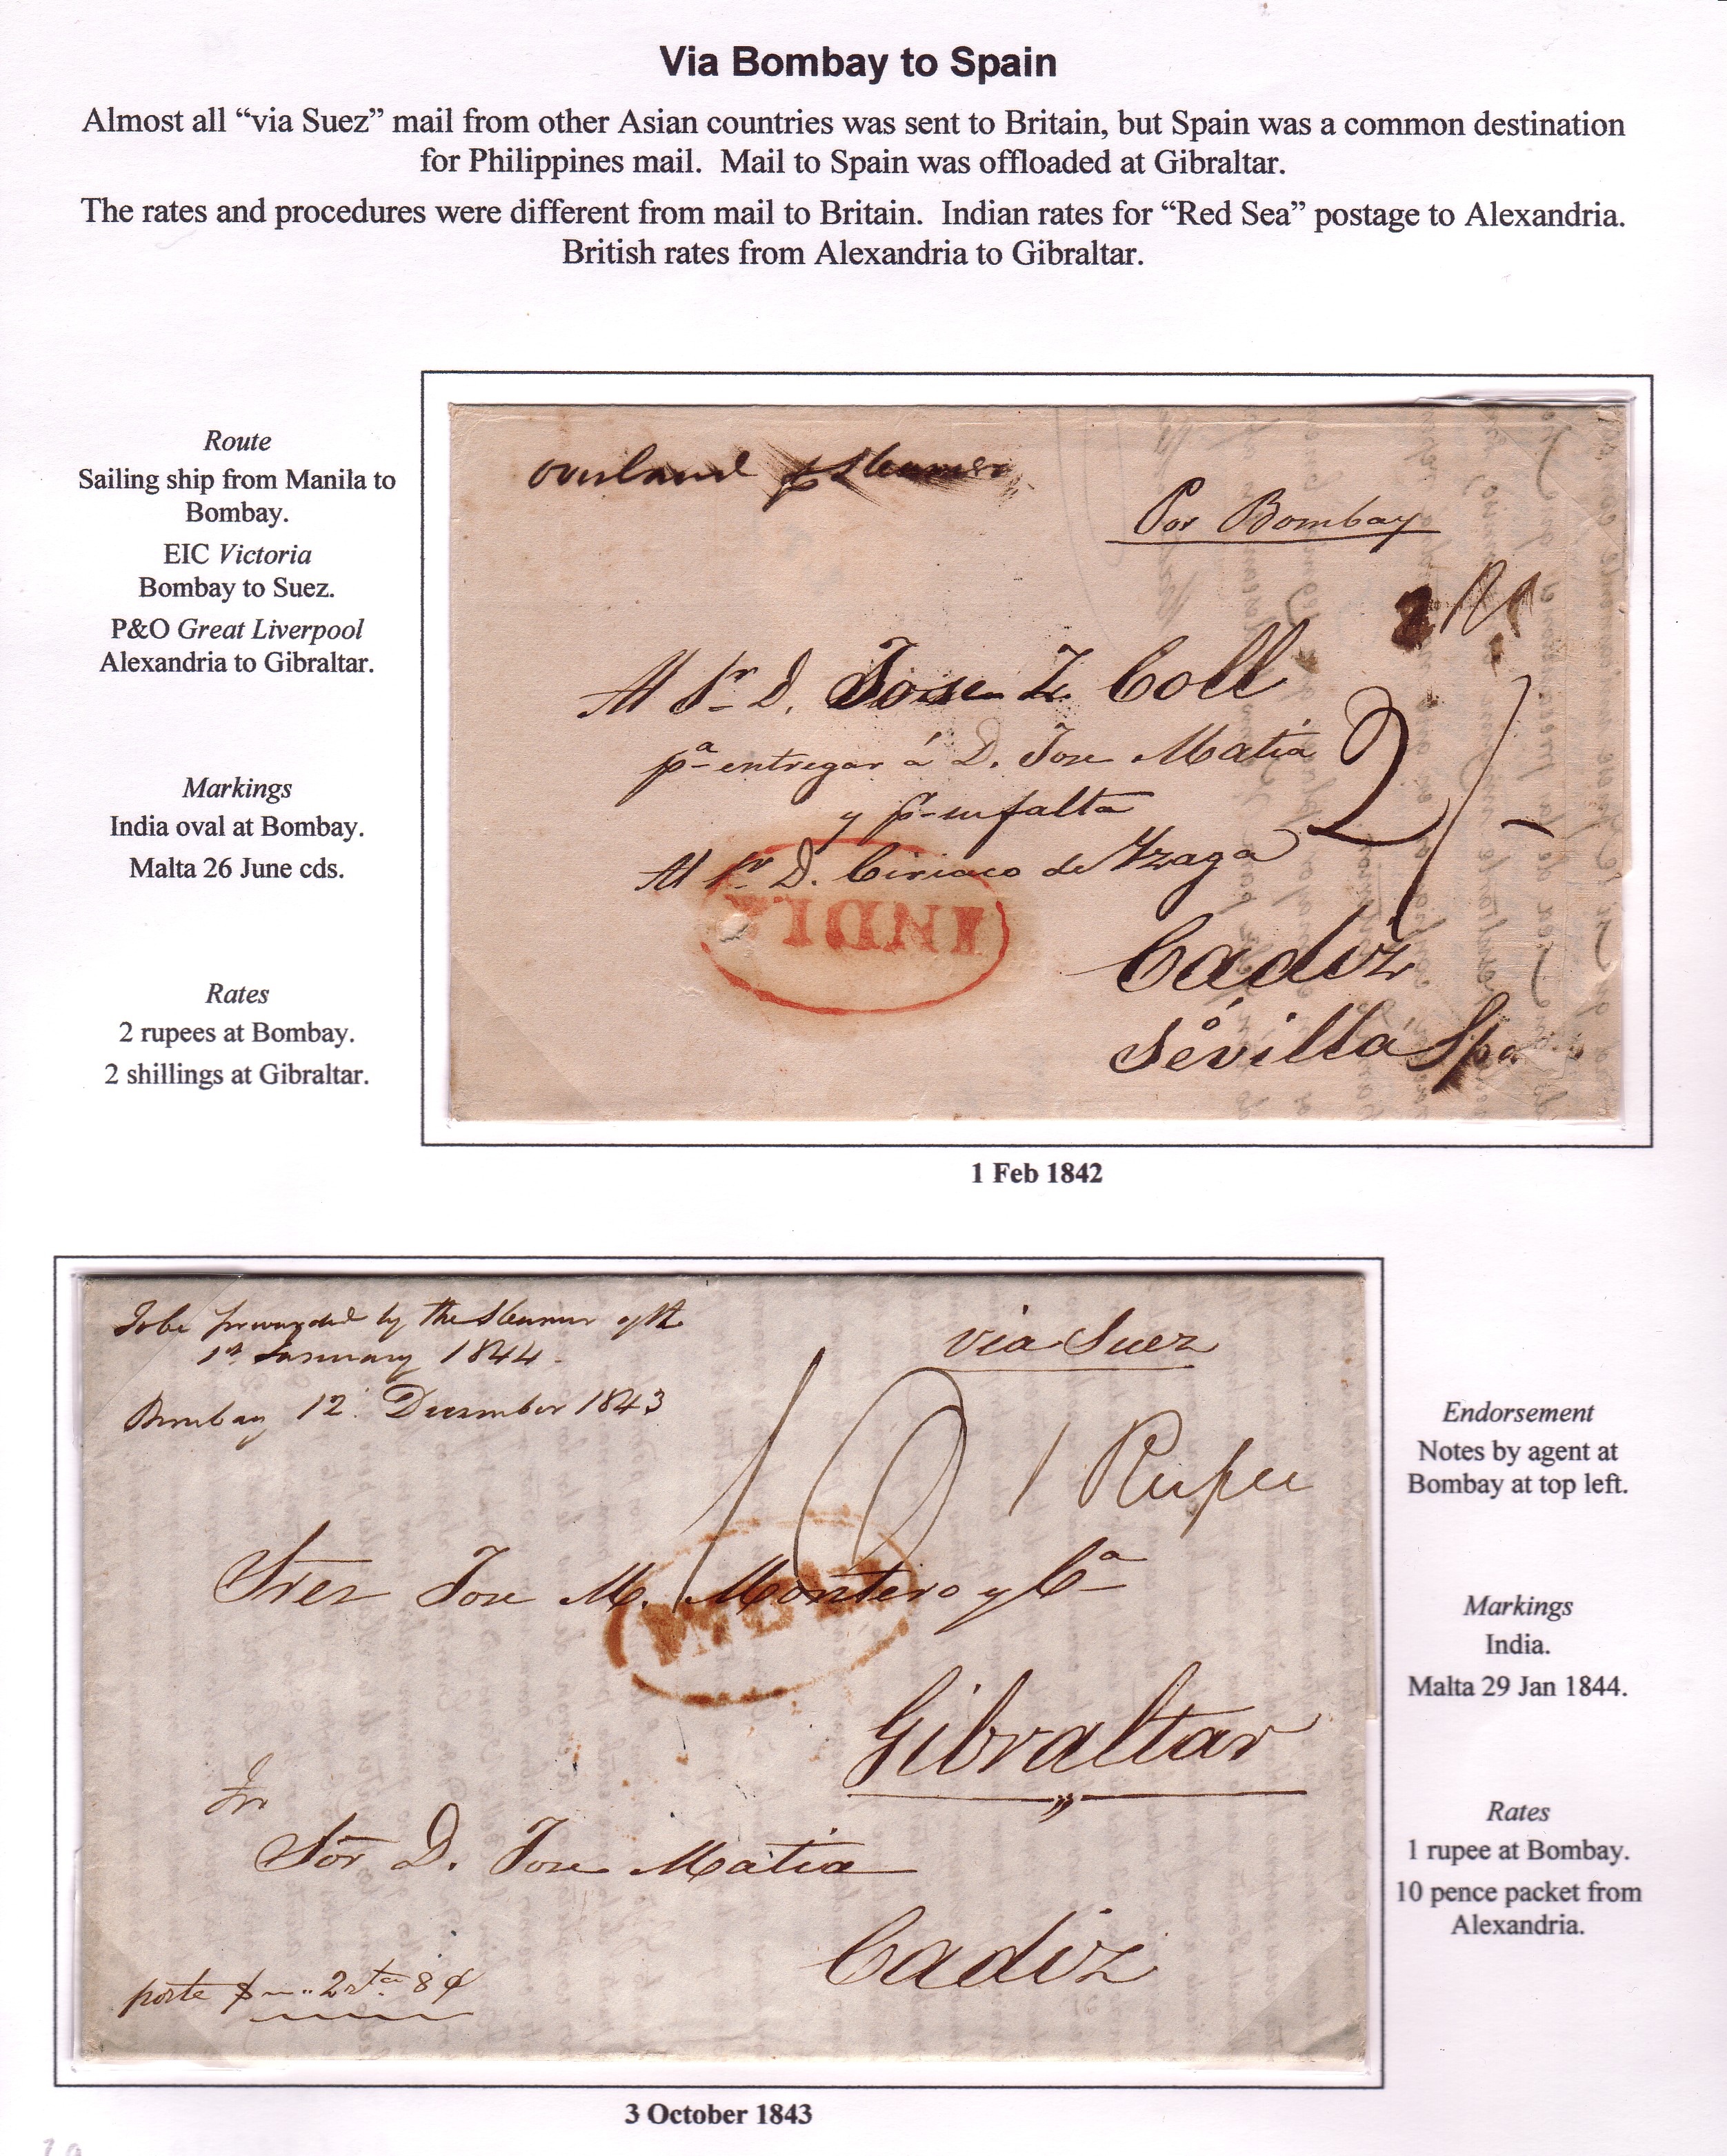 Via Bombay to Spain
Almost all “via Suez” mail from other Asian countries was sent to Britain, but Spain was a common destination
for Philippines mail. Mail to Spain was offloaded at Gibraltar.
The rates and procedures were different from mail to Britain. Indian rates for “Red Sea” postage to Alexandria.
British rates from Alexandria to Gibraltar.
Route
Sailing ship from Manila to
Bombay.
EIC Victoria
Bombay to Suez.
P&O Great Liverpool
Alexandria to Gibraltar.
Markings
India oval at Bombay.
Malta 26 June cds.
Rates
2 rupees at Bombay.
2 shillings at Gibraltar.
Overland p Steamer
Por Bombay
2 Rs
Al Sr D. Jose Coll
pa entregar á D. Jose Matia
2/-
y pr su falta
Al Sr D. Ciriaco de Yzaga
INDIA
Cadiz
Sevilla Spa
1 Feb 1842
To be forwarded by the Steamer of the
1st January 1844
Bombay 12 December 1843
via Suez
10
1 Rupee
Sres Jose M. Montero y Ca
INDIA
Gibraltar
Sor D. Jose Matia
Cadiz
porte $ 2 rta 8
3 October 1843
Endorsement
Notes by agent at
Bombay at top left.
Markings
India.
Malta 29 Jan 1844.
Rates
1 rupee at Bombay.
10 pence packet from
Alexandria.